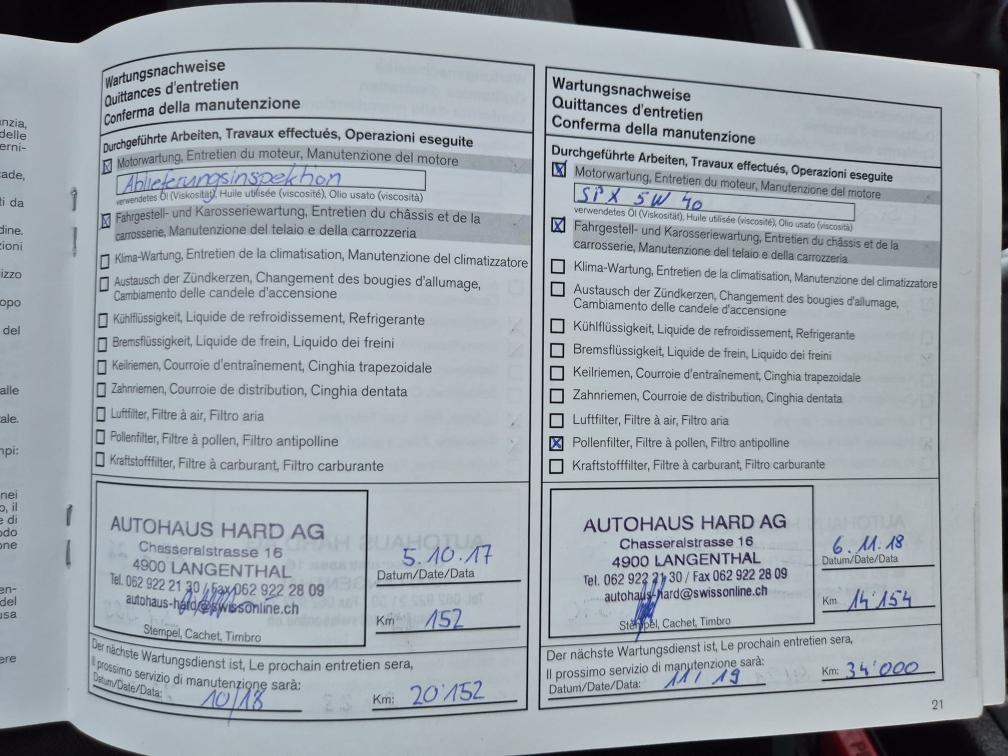 nzia,
delle
erni-
ade,
ti da
dine.
zioni
izzo
opo
del
alle
ale.
npi:
nei
o, il
e di
odo
one
en-
del
usa
ere
Wartungsnachweise
Quittances d'entretien
Conferma della manutenzione
Durchgeführte Arbeiten, Travaux effectués, Operazioni eseguite
Motorwartung, Entretien du moteur, Manutenzione del motore
Ablieferungsinspektion
verwendetes Öl (Viskosität), Huile utilisée (viscosité), Olio usato (viscosità)
Fahrgestell- und Karosseriewartung, Entretien du châssis et de la
carrosserie, Manutenzione del telaio e della carrozzeria
Klima-Wartung, Entretien de la climatisation, Manutenzione del climatizzatore
Austausch der Zündkerzen, Changement des bougies d'allumage,
Cambiamento delle candele d'accensione
Kühlflüssigkeit, Liquide de refroidissement, Refrigerante
Bremsflüssigkeit, Liquide de frein, Liquido dei freini
Keilriemen, Courroie d'entraînement, Cinghia trapezoidale
Zahnriemen, Courroie de distribution, Cinghia dentata
Luftfilter, Filtre à air, Filtro aria
Pollenfilter, Filtre à pollen, Filtro antipolline
Kraftstofffilter, Filtre à carburant, Filtro carburante
AUTOHAUS HARD AG
Chasseralstrasse 16
4900 LANGENTHAL
Tel. 062 922 21 30 / Fax 062 922 28 09
autohaus-hard@swissonline.ch
Stempel, Cachet, Timbro
5.10.17
Datum/Date/Data
Km 152
Der nächste Wartungsdienst ist, Le prochain entretien sera,
Il prossimo servizio di manutenzione sarà:
Datum/Date/Data: 10/18 Km: 20'152
Wartungsnachweise
Quittances d'entretien
Conferma della manutenzione
Durchgeführte Arbeiten, Travaux effectués, Operazioni eseguite
Motorwartung, Entretien du moteur, Manutenzione del motore
SPX 5W 40
verwendetes Öl (Viskosität), Huile utilisée (viscosité), Olio usato (viscosità)
Fahrgestell- und Karosseriewartung, Entretien du châssis et de la
carrosserie, Manutenzione del telaio e della carrozzeria
Klima-Wartung, Entretien de la climatisation, Manutenzione del climatizzatore
Austausch der Zündkerzen, Changement des bougies d'allumage,
Cambiamento delle candele d'accensione
Kühlflüssigkeit, Liquide de refroidissement, Refrigerante
Bremsflüssigkeit, Liquide de frein, Liquido dei freini
Keilriemen, Courroie d'entraînement, Cinghia trapezoidale
Zahnriemen, Courroie de distribution, Cinghia dentata
Luftfilter, Filtre à air, Filtro aria
Pollenfilter, Filtre à pollen, Filtro antipolline
Kraftstofffilter, Filtre à carburant, Filtro carburante
AUTOHAUS HARD AG
Chasseralstrasse 16
4900 LANGENTHAL
Tel. 062 922 21 30 / Fax 062 922 28 09
autohaus-hard@swissonline.ch
Stempel, Cachet, Timbro
6.11.18
Datum/Date/Data
Km 14'154
Der nächste Wartungsdienst ist, Le prochain entretien sera,
Il prossimo servizio di manutenzione sarà:
Datum/Date/Data: 11/19 Km: 34'000
21